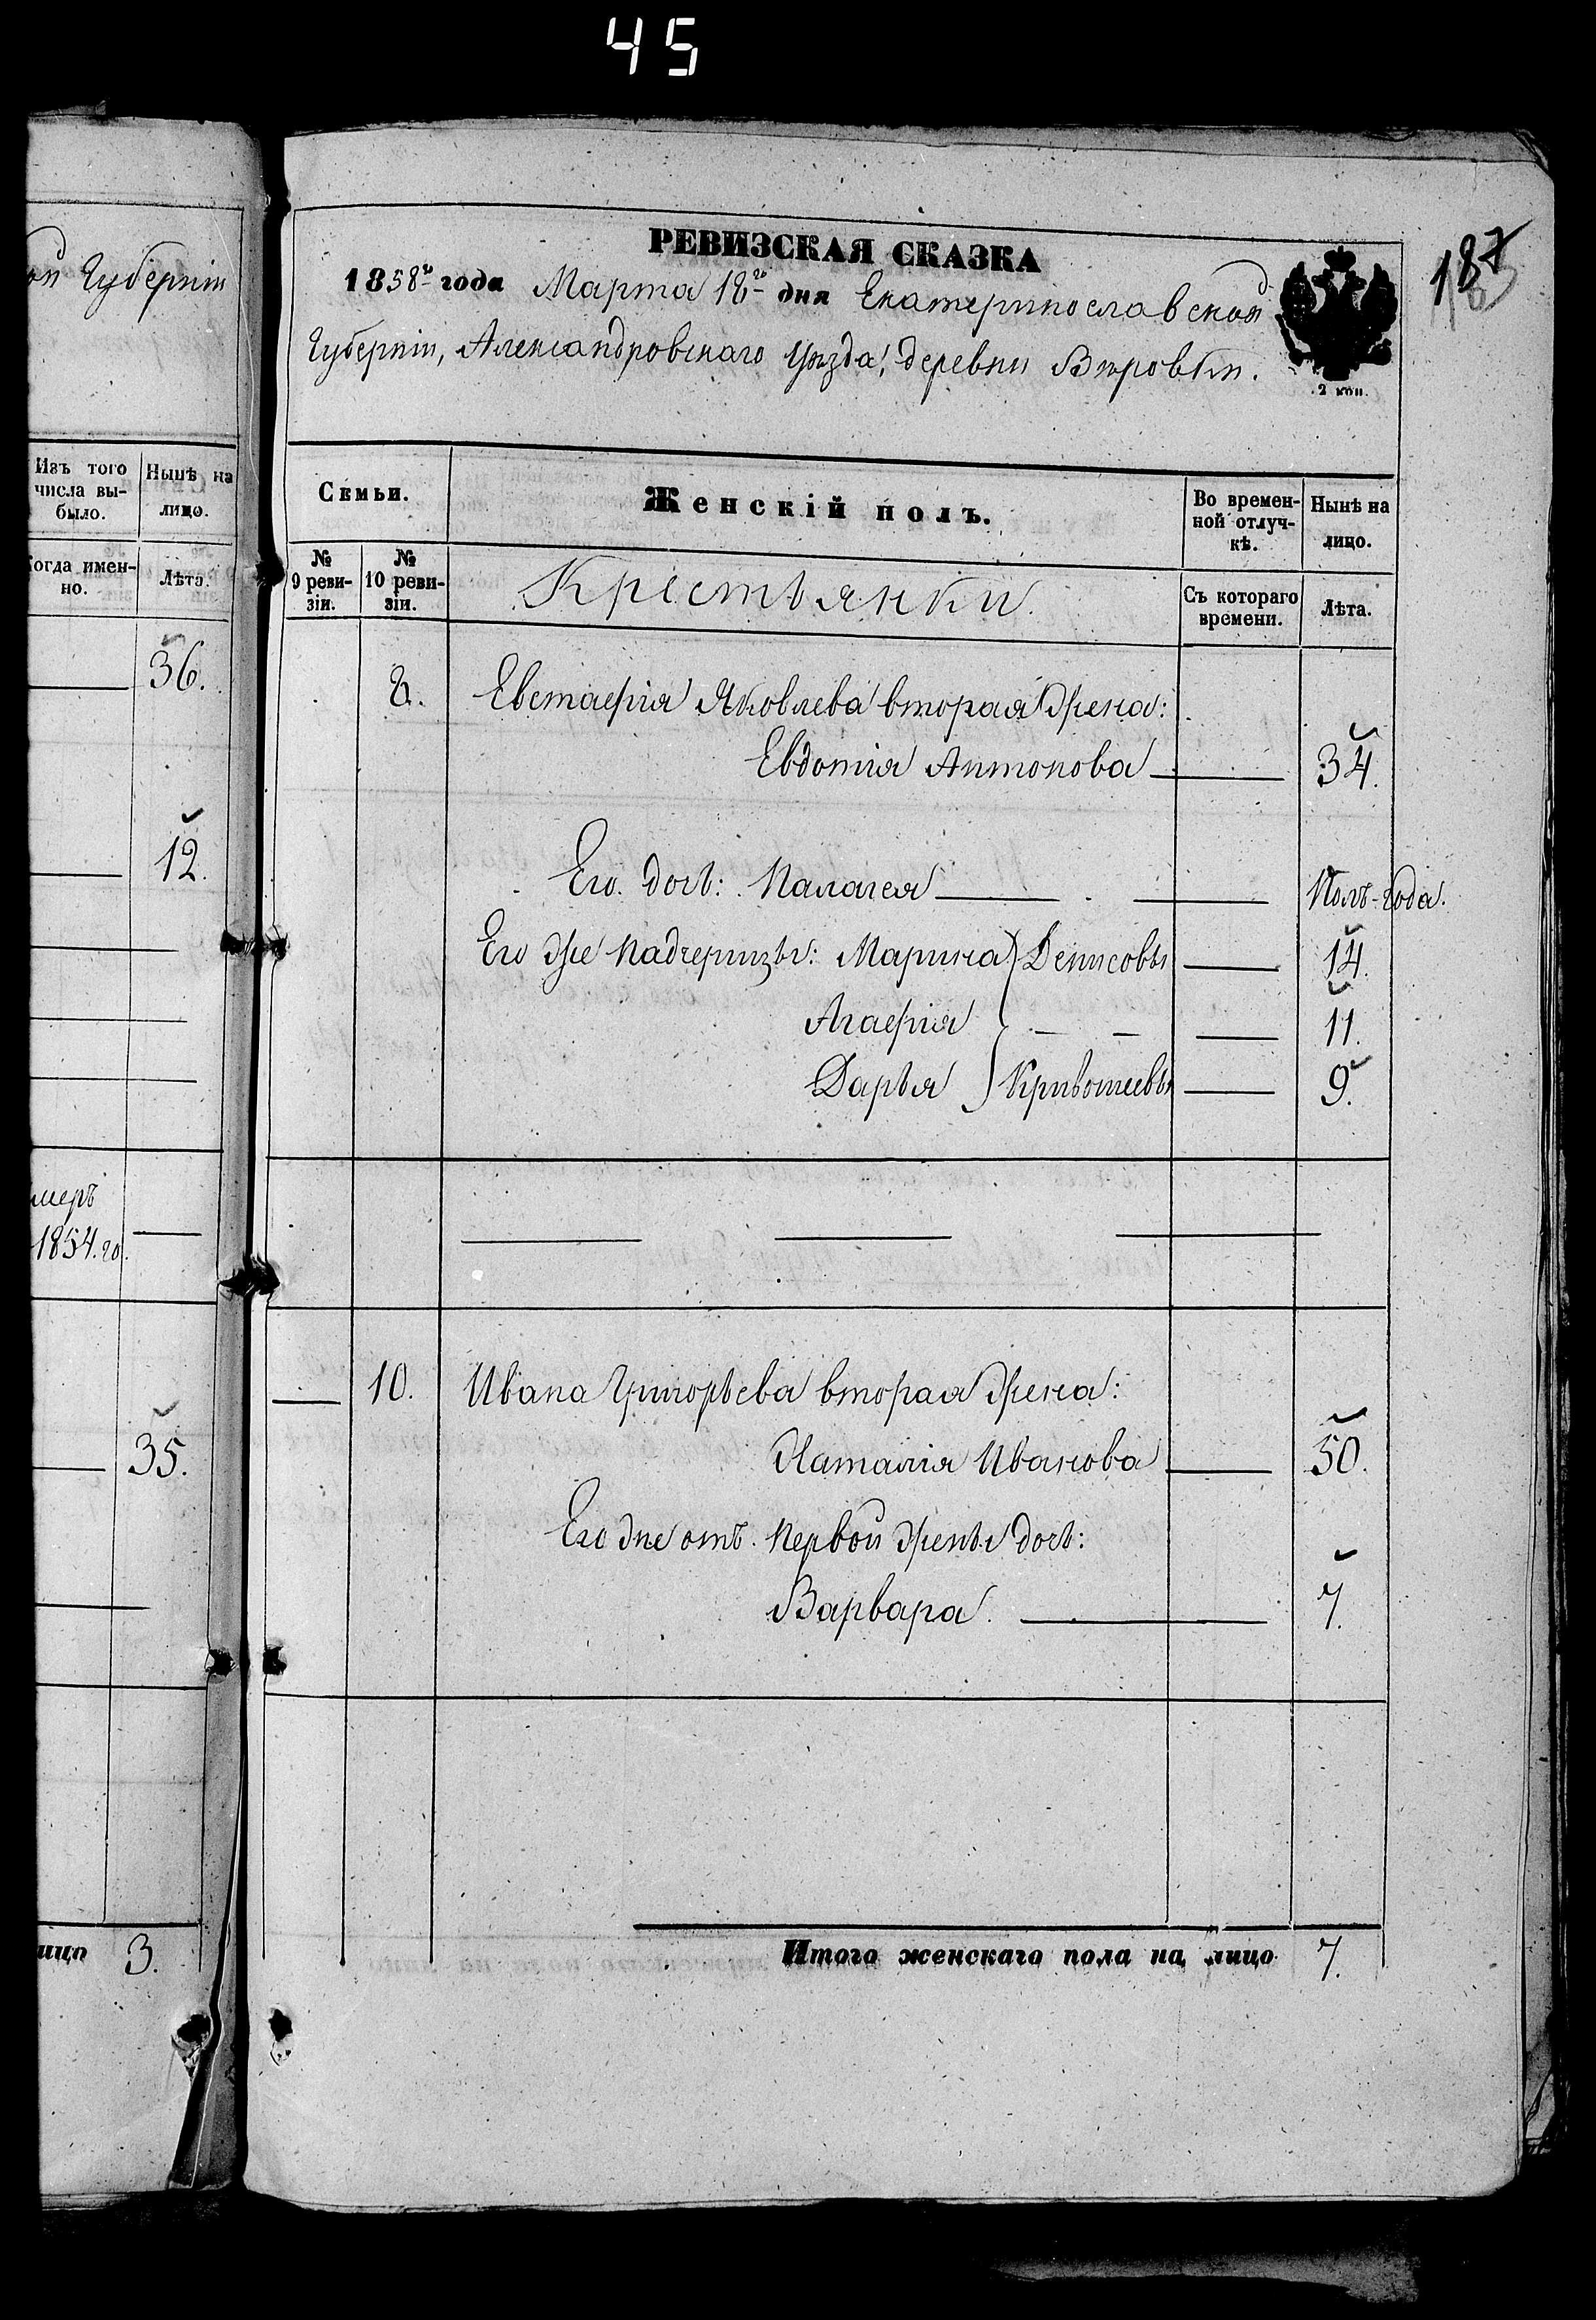 45
ой Губерніи
Изъ того числа вы-было.
Ныпѣ на лицо.
Когда имен-но.
Лѣта.
36.
12.
умеръ
1854.го.
35.
лицо 3.
РЕВИЗСКАЯ СКАЗКА
1858го года Марта 18го дня Екатеринославской
Губерніи, Александровскаго Уѣзда, деревни Вѣровки.
2 коп.
Семьи.
Женскій полъ.
Во времен-ной отлуч-кѣ.
Нынѣ на лицо.
№ 9 реви-зіи.
№ 10 реви-зіи.
Крестьянки.
Съ котораго времени.
Лѣта.
8. Евстафія Яковлева вторая жена:
Евдотія Антонова 34.
Его дочь: Палагея Полъ-года.
Его же падчерицы: Марина Денисовы 14.
Агафія 11.
Дарья Кривошеевы 9.
10. Ивана Григорьева вторая жена:
Наталія Иванова 50.
Его же отъ первой жены дочь:
Варвара. 7.
Итого женскаго пола на лицо 7.